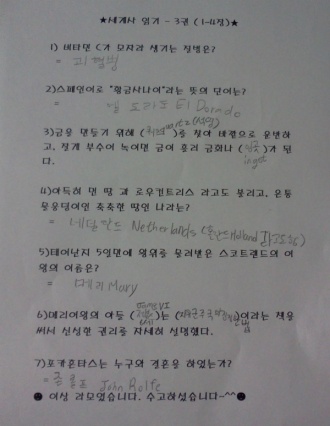 ★세계사 읽기 - 3권 (1-4장)★
1) 비타민 C가 모자라 생기는 질병은?
= 괴혈병
2)스페인어로 "황금사나이"라는 뜻의 단어는?
= 엘 도라도 El Dorado
3)금을 만들기 위해 ( quartz (석영) )를 찧어 바깥으로 운반하
고, 잘게 부수어 녹이면 금이 흘러 금화나 ( ingot )가 된
다.
4)아득히 먼 땅 과 로우컨트리스 라고도 불리고, 온통
물웅덩이인 축축한 땅인 나라는?
= 네덜란드 Netherlands (홀란드 Holland 라고도 함)
5)태어난지 5일만에 왕위를 물려받은 스코트랜드의 여
왕의 이름은?
= 메리 Mary
6)메리여왕의 아들 ( James VI )는 ( )이라는 책을
써서 신성한 권리를 자세히 설명했다.
7)포카혼타스는 누구와 결혼을 하였는가?
= 존 롤프 John Rolfe
☻ 이상 라모였습니다. 수고하셨습니다~^^ ☻